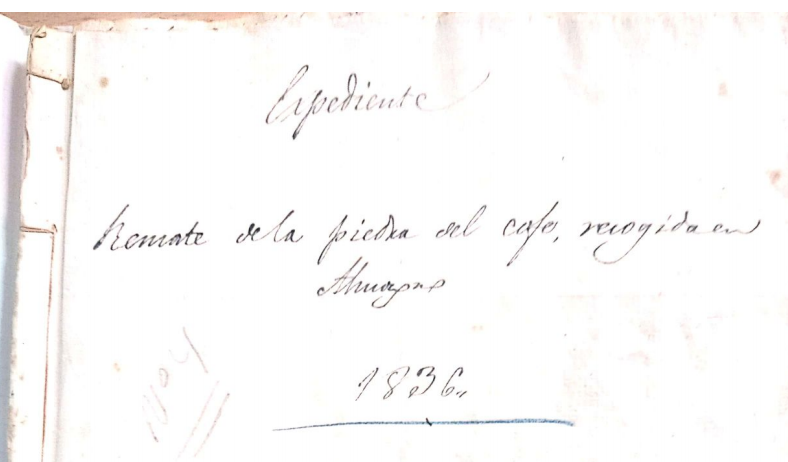 Expediente
Remate de la piedra del cafe, recogida en
1836.
Nº 4